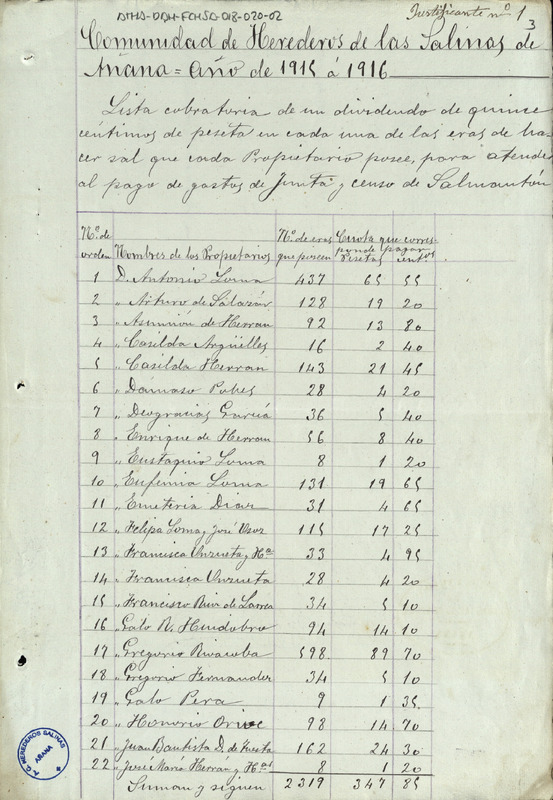 ATHA-DAH-FCHSA-018-020-02
Justificante nº 1
3
Comunidad de Herederos de las Salinas de
Añana = Año de 1915 á 1916
Lista cobratoria de un dividendo de quince
céntimos de peseta en cada una de las eras de ha-
cer sal que cada Propietario posee, para atender
al pago de gastos de Junta y censo de Salmantón
Nº. de orden Nombres de los Propietarios Nº. de eras que poseen Cuota que corresponde pagar Pesetas cents
1 D. Antonio Loma 437 65 55
2 „ Arturo de Salazár 128 19 20
3 „ Asunción de Herran 92 13 80
4 „ Casilda Argüelles 16 2 40
5 „ Casilda Herrán 143 21 45
6 „ Damaso Pobes 28 4 20
7 „ Deogracias García 36 5 40
8 „ Enrique de Herran 56 8 40
9 „ Eustaquio Loma 8 1 20
10 „ Eufemia Loma 131 19 65
11 „ Emeteria Diaz 31 4 65
12 „ Felipa Loma y José Usoz 115 17 25
13 „ Francisca Unzueta y Hª 33 4 95
14 „ Francisca Unzueta 28 4 20
15 „ Francisco Ruiz de Larrea 34 5 10
16 „ Galo R. Huidobro 94 14 10
17 „ Gregorio Rivacoba 598 89 70
18 „ Gregorio Fernandez 34 5 10
19 „ Galo Pera 9 1 35
20 „ Honorio Orive 98 14 70
21 „ Juan Bautista D. de Tuesta 162 24 30
22 „ José María Herrán y Hªs 8 1 20
Suman y siguen 2319 347 85
HEREDEROS SALINAS
AÑANA